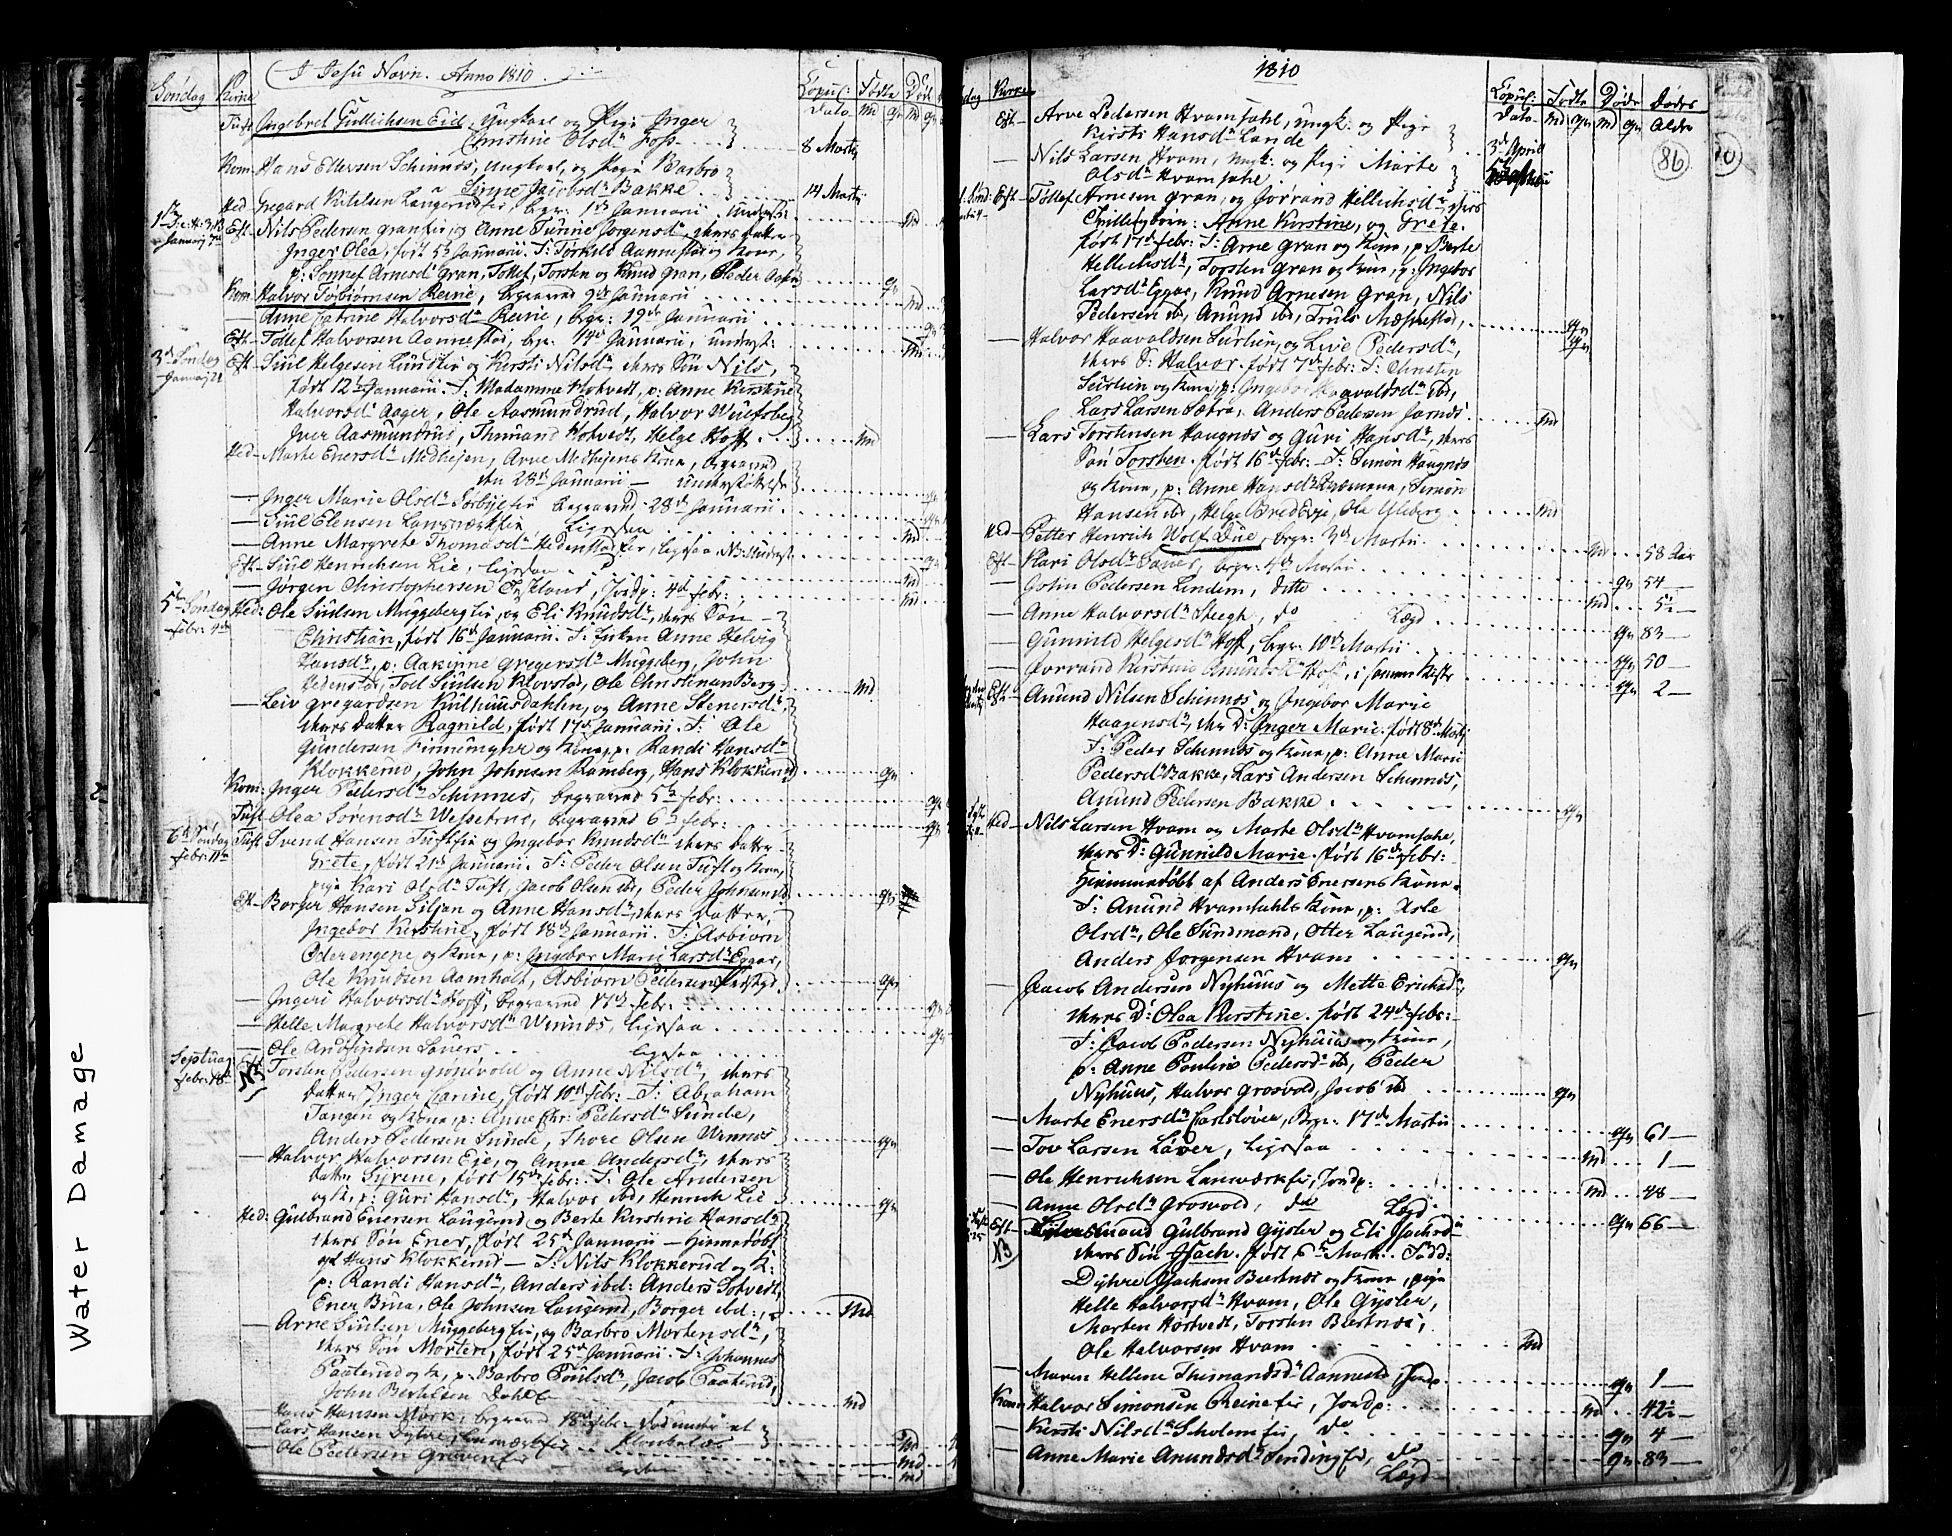 I Jesu Navn. Anno 1810.
Søndag Kirke Copul: Dato Fødte md qn Døde md qn
Tuft Ingebret Gullichsen Eid, Ungkarl og Pige Inger
Christine Olsdr Foss 8 Martii
Kom Hans Ellevsen Schinnes, Ungkarl, og Pige Barbro
Sinne Jacobsdr Bakke 14 Martii
Hed Gregard Kittelsen Laugerudeie, begr: 1ste Januarii underst:
Eft Nils Pedersen graneie, og Anne Tunne Jorgensdr, theres datter md
Januarij 7de
Inger Olea, født 5te Januarii. T: Torkild Aannestad og Kone,
p: Sonnef Arnesdr Gran, Tollef, Torsten og Knud Gran, Peder qn
Kom: Halvor Torbiørnsen Reine, begraved 9de Januarii md
— Anne Catrine Halvorsdr Reine, begr: 19de Januarii qn
Eft— Tollef Halvorsen Aannestad, begr: 19de Januarii, underst: md
3de Søndag Eft Siul Helgesen Lundeeie og Kersti Nilsdr theres Søn Nils,
Januarj 21
født 12te Januarii. T: Madamme Hotvedt, p: Anne Kirstine
Halvorsdr Aager, Ole Aasmundrud, Halvor Wulfsberg
Iver Aasmundrud, Thurand Hotvedt, Helge Hoff md
Hed— Marte Enersdr Medhejen, Arne Medhejens Kone, begraved
den 28de Januarii — understøttelse qn
— Inger Marie Olsdr Sørbyeeie begraved 28de Januarii qn
— Siul Elensen Langnæseie, ligesaa md
— Anne Margrete Thomasdr Hedenstadeie, ligesaa, qn
Eft— Siul Henrichsen Lie, ligesaa md
— Jørgen Christophersen Eikeland, Jordp: 4de febr: md
5te Søndag Hed: Ole Siulsen Muggebergeie, og Eli Knudsdr, theres Søn
febr: 4de
Christian, født 16de Januarii. T: Anne Helvig
Hansdr, p: Gregersdr Muggeberg, John
Hedenstad, Siulsen Klovstad, Ole Christiansen Berg md
— Leiv Gregardsen Kulhuusdahlen, og Anne Stenersdr,
theres datter Ragnild, født 17de Januarii. T: Ole
Gundersen Finnemyhr og Kone, p: Randi Hansdr
Klokkerud, John Johnsen Ramberg, Hans Klokkerud qn
Kom: Inger Pedersdr Schinnes, begraved 5te febr: qn
Tuft Olea Sørensdr Wefsetrud, begraved 6te febr: qn
6te Søndag Tuft Svend Hansen Tufteie og Ingebor Knudsdr theres datter
febr: 11te
Grete, født 21de Januarii. T: Peder Olsen Tuft og Kone,
pige Kari Olsdr Tuft, Jacob Olsen ibd, Peder Johnsen ibd qn
Eft— Borger Hansen Siljan og Anne Hansdr, theres datter,
Ingebor Kirstine, født 18de Januarii. T: Asbiørn
Oderengene og Kone, p: Ingebor Marie Larsdr Eggar,
Ole Knudsen Aamholt, Asbiørn Pedersen qn
— Ingeri Halvorsdr Hoff, begraved 17de febr: qn
— Helle Margrete Halvorsdr Winnes, ligesaa qn
— Ole Andfindsen Lauers ligesaa
Septuag Eft Torsten Pedersen Gronevold og Anne Nilsdr, theres
febr: 18de NB
datter Inger Carine, født 10de febr: T: Abraham
Tangen og Kone, p: Anne Chr: Pedersdr Sunde,
Anders Pedersen Sunde, Thore Olsen Winnes qn
— Halvor Halvorsen Eje, og Anne Andersdr, theres
datter Syrene, født 15de febr: T: Ole Andersen
og K, p: Guri Hansdr, Halvor ibd, Henrich Lie qn
Hed: Gulbrand Enersen Laugerud og Berte Kirstine Hansdr
theres Søn Ener, født 25de Januarii — Hiemedøbt
af Hans Klokkerud — T: Nils Klokkerud og K:
p: Randi Hansdr, Anders ibd: Anders Sotvedt,
Ener Brua, Ole Johnsen Laugerud, Borger ibd: md
— Arne Siulsen Muggebergeie, og Barbro Mortensdr,
theres Søn Morten, født 25de Januarii. T: Johannes
Paaterud og K, p: Barbro Poulsdr, Jacob Paaterud,
John Berthelsen Dahle md
— Hans Hansen Mørk, begraved 18de febr: md
— Lars Hansen md
— Ole Pedersen md
1810
Kirke Copul: Dato Fødte md qn Døde md qn Dødes Aldre
86
Eft— Arve Pedersen Hvamsahl, ungk: og Pige
Kirsti Hansdr Lande 3de April
— Nils Larsen Hvam, ungk: og Pige Marte
Olsdr Hvamsahe
Eft— Tollef Arnesen Gran, og Jørrand Hellichsdr, theres
Tvillingbørn: Anne Kirstine, og Grete.
født 17de febr: T: Arne Gran og Kone, p: Berte
Hellichsdr, Torsten Gran og Kone, p: Ingebor
Larsdr Eggar, Knud Arnesen Gran, Nils
Pedersen ibd, Amund ibd, Truls qn
— Halvor Haavaldsen Surlien, og Live Pedersdr, qn
theres S: Halvor. født 7de febr: T: Christen
Surlien og Kone, p: Ingebor Haavaldsdr ibd,
Lars Larsen Sætra, Anders Pedersen Jarnes md
— Lars Torstensen Haugnæs og Guri Hansdr, theres
Søn Torsten. født 16de febr: T: Simon Haugnæs
og Kone, p: Anne Hansdr, Simon
Hansen ibd, Helge BredEsje, Ole Ulleberg md
Hed— Petter Henrich Wolf Due, begr: 3de Martii md 58 Aar
Eft— Kari Olsdr Sauer, begr: 4de Martii qn 54 —
— Gosin Pedersen Lindem, ditto md 5½ —
— Anne Halvorsdr Steegh, do Lægd qn 83 —
— Gunnild Helgesdr Hoff, begr: 10de Martii qn 50 —
— Jørrand Kirstine Amundsdr Hoff, i samme Kiste qn 2 —
Eft— Amund Nilsen Schinnes og Ingebor Marie
Haagensdr, ther D: Inger Marie. født 8de Martij
T: Peder Schinnes og Kone, p: Anne Marie
Pedersdr Bakke, Lars Andersen Schinnes,
Amund Pedersen Bakke qn
Hed— Nils Larsen Hvam og Marte Olsdr Hvamsahe,
theres D: Gunnild Marie. født 16de febr:
Hiemmedøbt af Anders Enersens Kone.
T: Amund Hvamsahls Kone, p: Asle
Olsdr, Ole Sundmand, Otter Laugerud,
Anders Jørgensen Hvam qn
— Jacob Andersen Nyhuus og Mette Erichsdr,
theres D: Olea Kirstine. født 24de febr:
T: Jacob Pedersen Nyhuus og Kone,
p: Anne Pouline Pedersdr ibd, Peder
Nyhuus, Halvor Grosvold, Jacob ibd qn
— Marte Enersdr Carlsloven, Begr: 17de Martii qn 61 —
— Tov Larsen Laver, ligesaa md 1 —
— Ole Henrichsen Langværkeie, Jordp: md 48 —
— Anne Olsdr Grosvold, do Lægd qn 66 —
Eft— Gulbrand Gysler og Eli Isachsdr
NB theres Søn Isach. født 6te Mart. T:
Dyhre Isachsen Bertnæs og Kone, pige
Helle Halvorsdr Hvam, Ole Gysler,
Morten Hostvedt, Torsten Bertnæs,
Ole Halvorsen Hvam md
— Maren Hellene Thurandsdr Aannestad, Jordp qn 1 —
Kom Halvor Simonsen Reineeie, Jordp: md 42½ —
— Kirsti Nilsdr Scholemeie, do qn 4 —
— Anne Marie Amundsdr Sendingeie, do Lægd qn 83 —
Water Damage